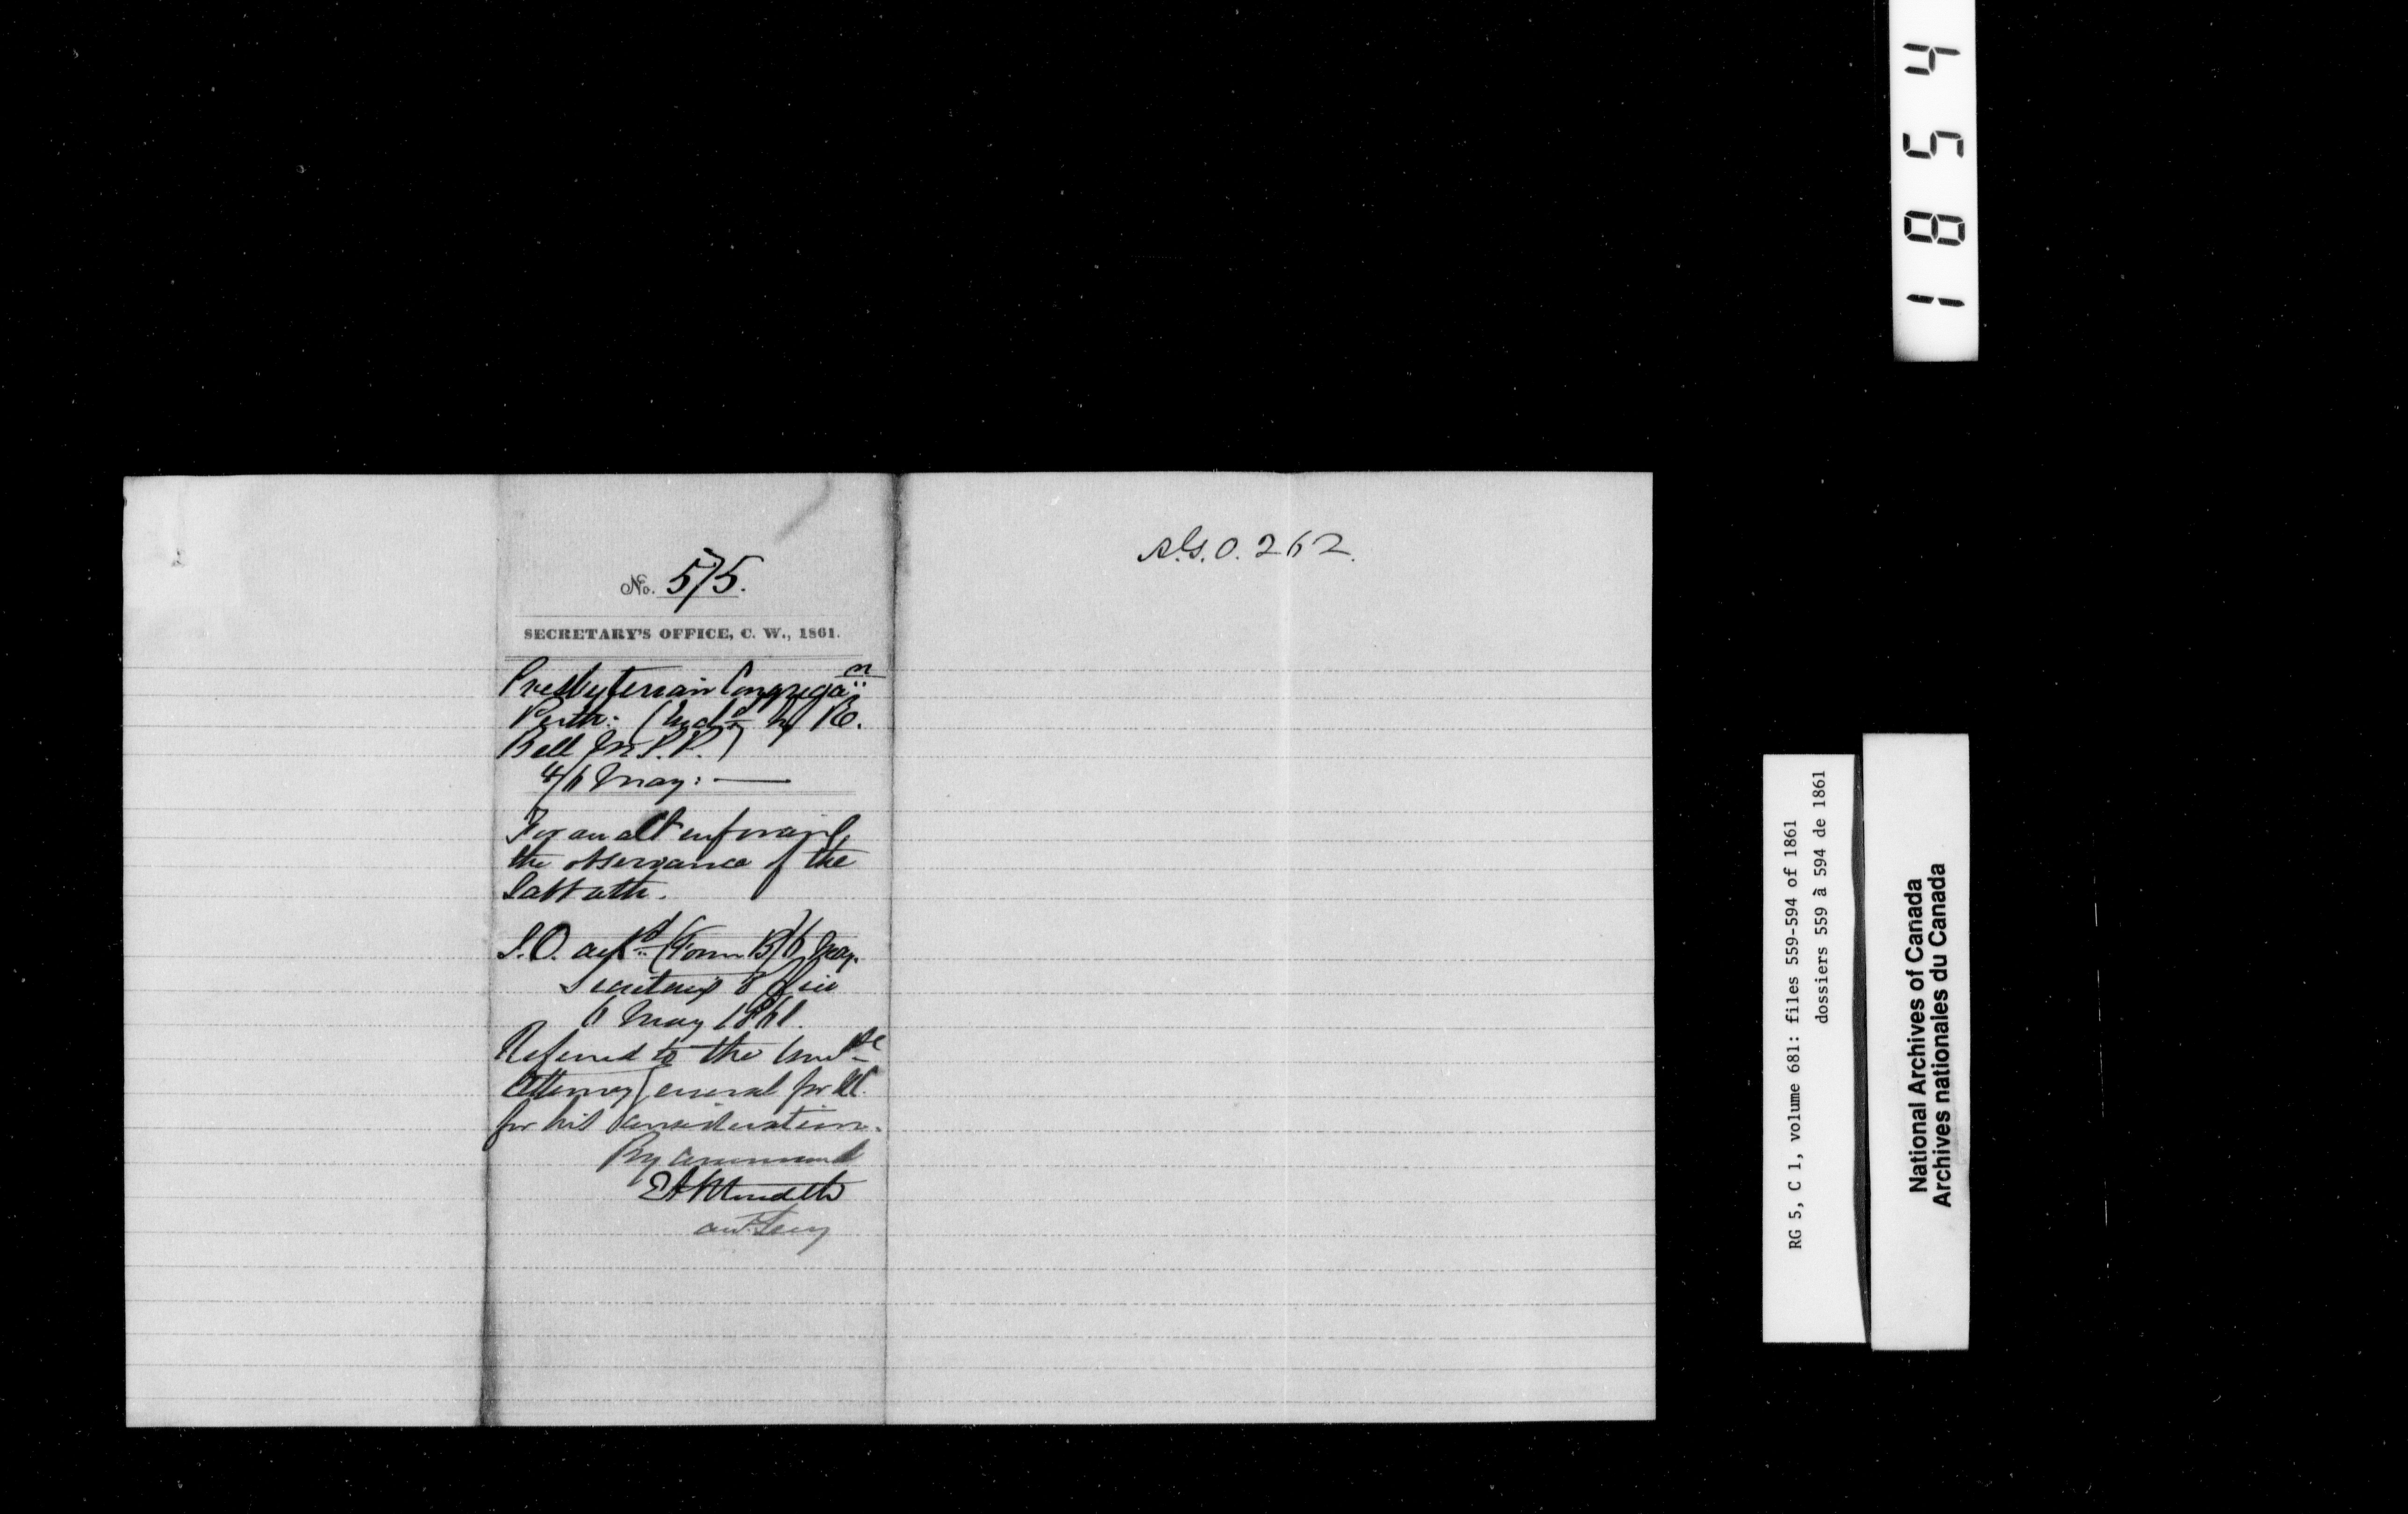 No. 575.
SECRETARY'S OFFICE, C. W., 1861.
Presbyterian Congregan
Perth: (Encd by R.
Bell M.P.P.)
4/6 May:
For an act enforcing
the observance of the
Sabbath.
S.O. ackd (Form B) 6 May.
Secretary's Office
6 May 1861.
Referred to the Honble
Attorney General for UC.
for his consideration.
By command
E A Meredith
asst Secy
262.
1854
RG 5, C 1, volume 681: files 559-594 of 1861
dossiers 559 à 594 de 1861
National Archives of Canada
Archives nationales du Canada